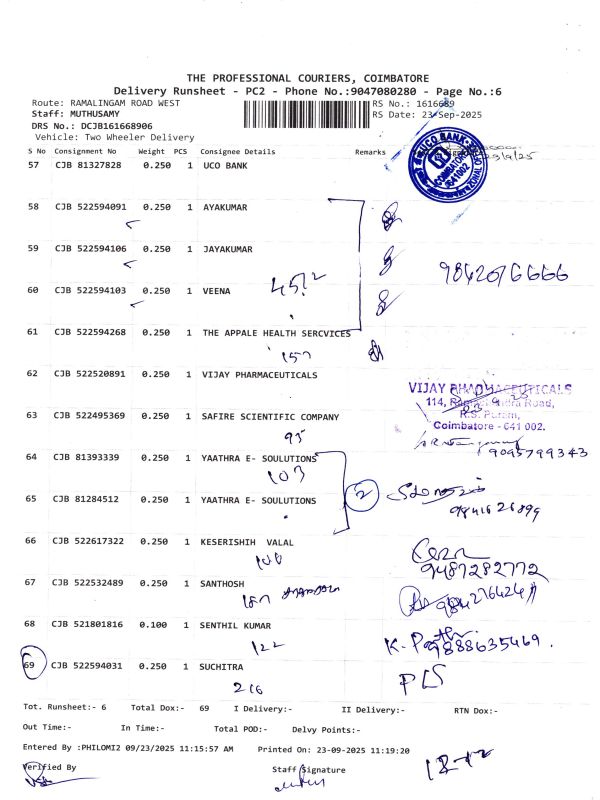 THE PROFESSIONAL COURIERS, COIMBATORE
Delivery Runsheet - PC2 - Phone No.:9047080280 - Page No.:6
Route: RAMALINGAM ROAD WEST
RS No.: 1616689
Staff: MUTHUSAMY
RS Date: 23-Sep-2025
DRS No.: DCJB161668906
Vehicle: Two Wheeler Delivery
S No Consignment No Weight PCS Consignee Details Remarks
57 CJB 81327828 0.250 1 UCO BANK
UCO BANK
COIMBATORE
641002
58 CJB 522594091 0.250 1 AYAKUMAR
59 CJB 522594106 0.250 1 JAYAKUMAR
9842076666
60 CJB 522594103 0.250 1 VEENA
61 CJB 522594268 0.250 1 THE APPALE HEALTH SERCVICES
157
62 CJB 522520891 0.250 1 VIJAY PHARMACEUTICALS
VIJAY PHARMACEUTICALS
114, Ramachandra Road,
R.S. Puram,
Coimbatore - 641 002.
63 CJB 522495369 0.250 1 SAFIRE SCIENTIFIC COMPANY
95
9095799343
64 CJB 81393339 0.250 1 YAATHRA E- SOULUTIONS
103
2
65 CJB 81284512 0.250 1 YAATHRA E- SOULUTIONS
66 CJB 522617322 0.250 1 KESERISHIH VALAL
9487282772
67 CJB 522532489 0.250 1 SANTHOSH
68 CJB 521801816 0.100 1 SENTHIL KUMAR
122
9888635469.
69 CJB 522594031 0.250 1 SUCHITRA
216
Tot. Runsheet:- 6 Total Dox:- 69 I Delivery:- II Delivery:- RTN Dox:-
Out Time:- In Time:- Total POD:- Delvy Points:-
Entered By :PHILOMI2 09/23/2025 11:15:57 AM Printed On: 23-09-2025 11:19:20
Verified By Staff Signature